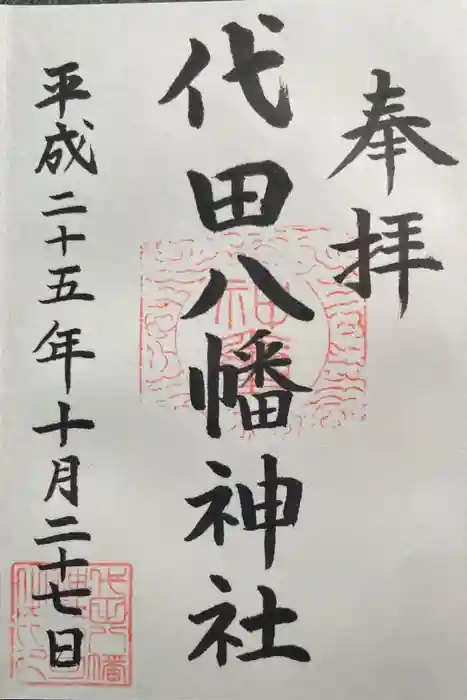 奉拝
代田八幡神社
平成二十五年十月二十七日